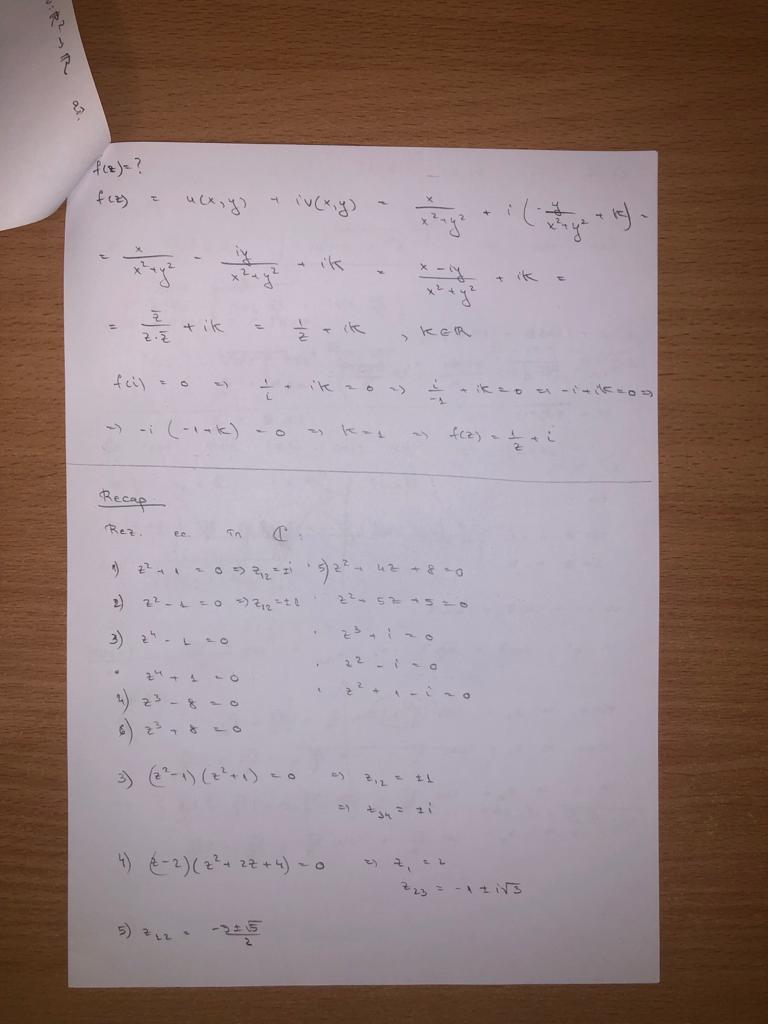 : ℝ² → ℝ
f(z) = ?
f(z) = u(x,y) + iv(x,y) = x/(x²+y²) + i(-y/(x²+y²) + K) =
= x/(x²+y²) - iy/(x²+y²) + iK = (x-iy)/(x²+y²) + iK =
= z̄/(z·z̄) + iK = 1/z + iK , K∈ℝ
f(i) = 0 => 1/i + iK = 0 => i/-1 + iK = 0 => -i+iK=0 =>
=> -i(-1+K) = 0 => K=1 => f(z) = 1/z + i
Recap
Rez. ec. în ℂ:
1) z²+1 = 0 => z₁₂=±i · 5) z² + 4z + 8 = 0
2) z²-1 = 0 => z₁₂=±1 · z² + 5z + 5 = 0
3) z⁴-1 = 0 · z³ + i = 0
· z⁴ + 1 = 0 · z² - i = 0
4) z³ - 8 = 0 · z² + 1 - i = 0
6) z³ + 8 = 0
3) (z²-1)(z²+1) = 0 => z₁₂ = ±1
=> z₃₄ = ±i
4) (z-2)(z²+2z+4) = 0 => z₁ = 2
z₂₃ = -1 ± i√3
5) z₁₂ =